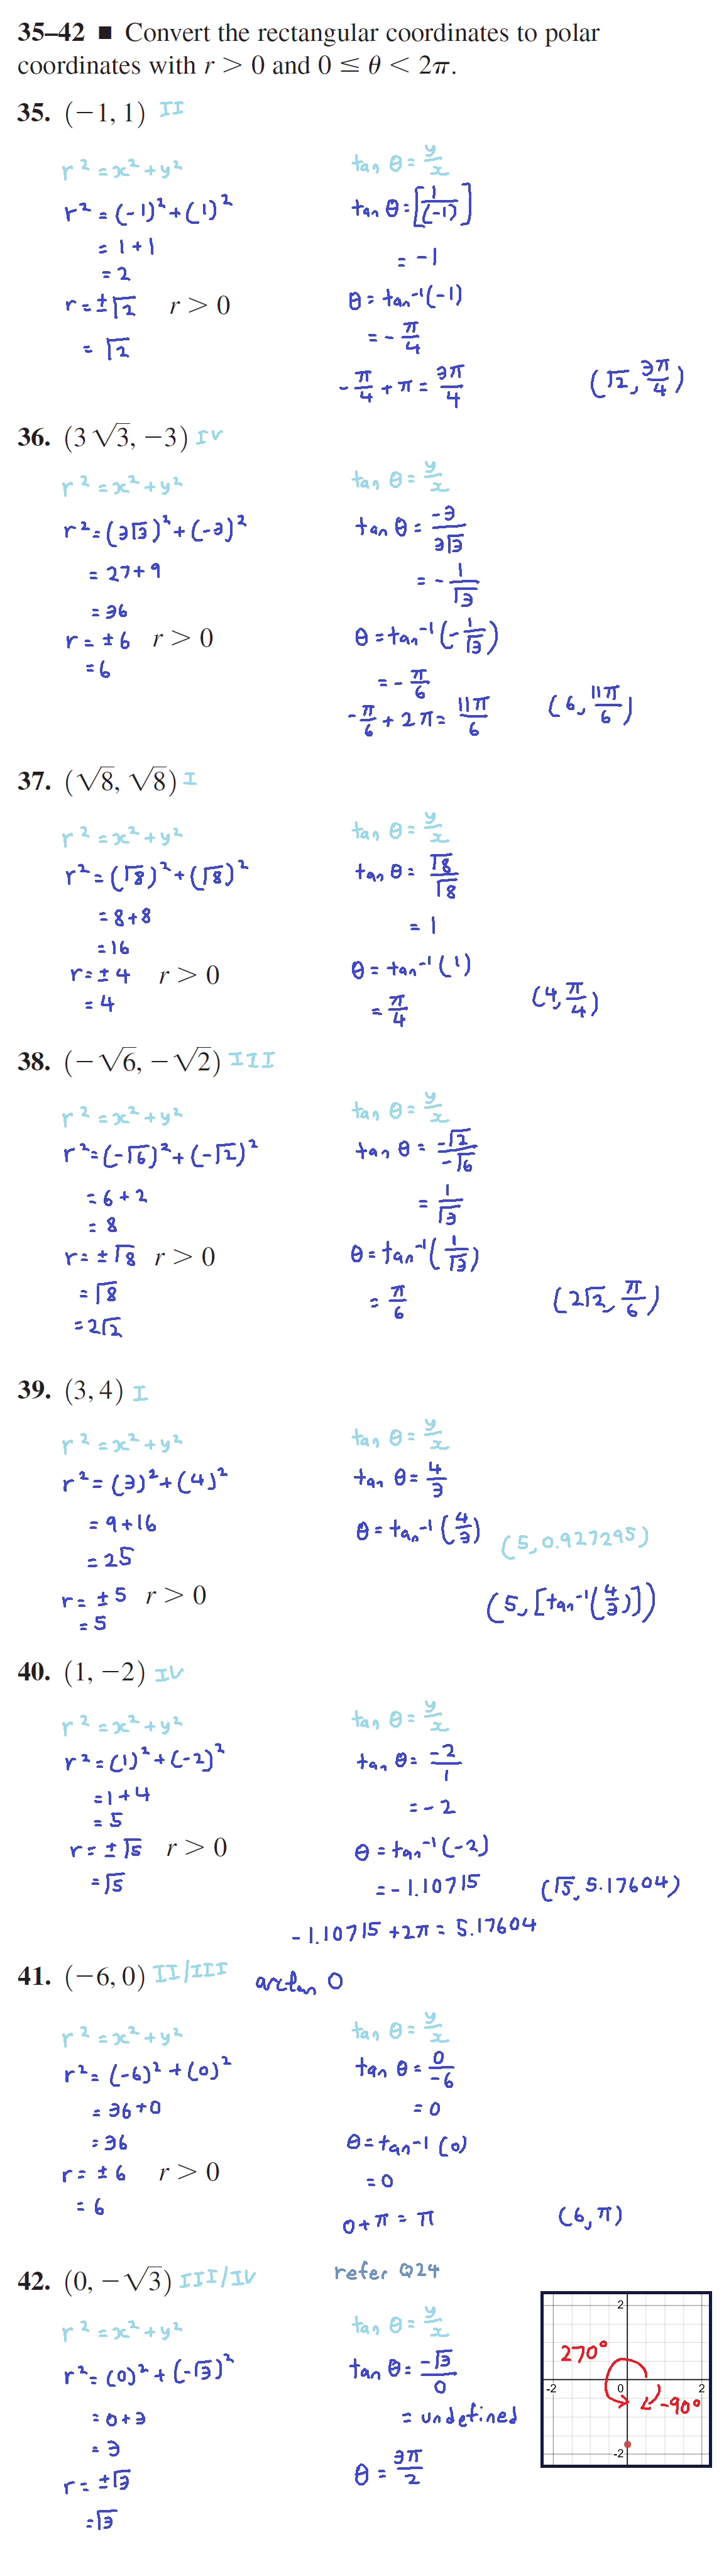 35–42 ■ Convert the rectangular coordinates to polar
coordinates with r > 0 and 0 ≤ θ < 2π.
35. (−1, 1) II
r² = x² + y²
r² = (-1)² + (1)²
= 1 + 1
= 2
r = ±√2 r > 0
= √2
tan θ = y/x
tan θ = [1/(-1)]
= -1
θ = tan⁻¹(-1)
= -π/4
-π/4 + π = 3π/4
(√2, 3π/4)
36. (3√3, −3) IV
r² = x² + y²
r² = (3√3)² + (-3)²
= 27 + 9
= 36
r = ±6 r > 0
= 6
tan θ = y/x
tan θ = -3/3√3
= -1/√3
θ = tan⁻¹(-1/√3)
= -π/6
-π/6 + 2π = 11π/6
(6, 11π/6)
37. (√8, √8) I
r² = x² + y²
r² = (√8)² + (√8)²
= 8 + 8
= 16
r = ±4 r > 0
= 4
tan θ = y/x
tan θ = √8/√8
= 1
θ = tan⁻¹(1)
= π/4
(4, π/4)
38. (−√6, −√2) III
r² = x² + y²
r² = (-√6)² + (-√2)²
= 6 + 2
= 8
r = ±√8 r > 0
= √8
= 2√2
tan θ = y/x
tan θ = -√2/-√6
= 1/√3
θ = tan⁻¹(1/√3)
= π/6
(2√2, π/6)
39. (3, 4) I
r² = x² + y²
r² = (3)² + (4)²
= 9 + 16
= 25
r = ±5 r > 0
= 5
tan θ = y/x
tan θ = 4/3
θ = tan⁻¹(4/3)
(5, 0.927295)
(5, [tan⁻¹(4/3)])
40. (1, −2) IV
r² = x² + y²
r² = (1)² + (-2)²
= 1 + 4
= 5
r = ±√5 r > 0
= √5
tan θ = y/x
tan θ = -2/1
= -2
θ = tan⁻¹(-2)
= -1.10715
(√5, 5.17604)
-1.10715 + 2π = 5.17604
41. (−6, 0) II/III arctan 0
r² = x² + y²
r² = (-6)² + (0)²
= 36 + 0
= 36
r = ±6 r > 0
= 6
tan θ = y/x
tan θ = 0/-6
= 0
θ = tan⁻¹(0)
= 0
0 + π = π
(6, π)
42. (0, −√3) III/IV refer Q24
r² = x² + y²
r² = (0)² + (-√3)²
= 0 + 3
= 3
r = ±√3
= √3
tan θ = y/x
tan θ = -√3/0
= undefined
θ = 3π/2
2
270°
-2 0 2
-90°
-2